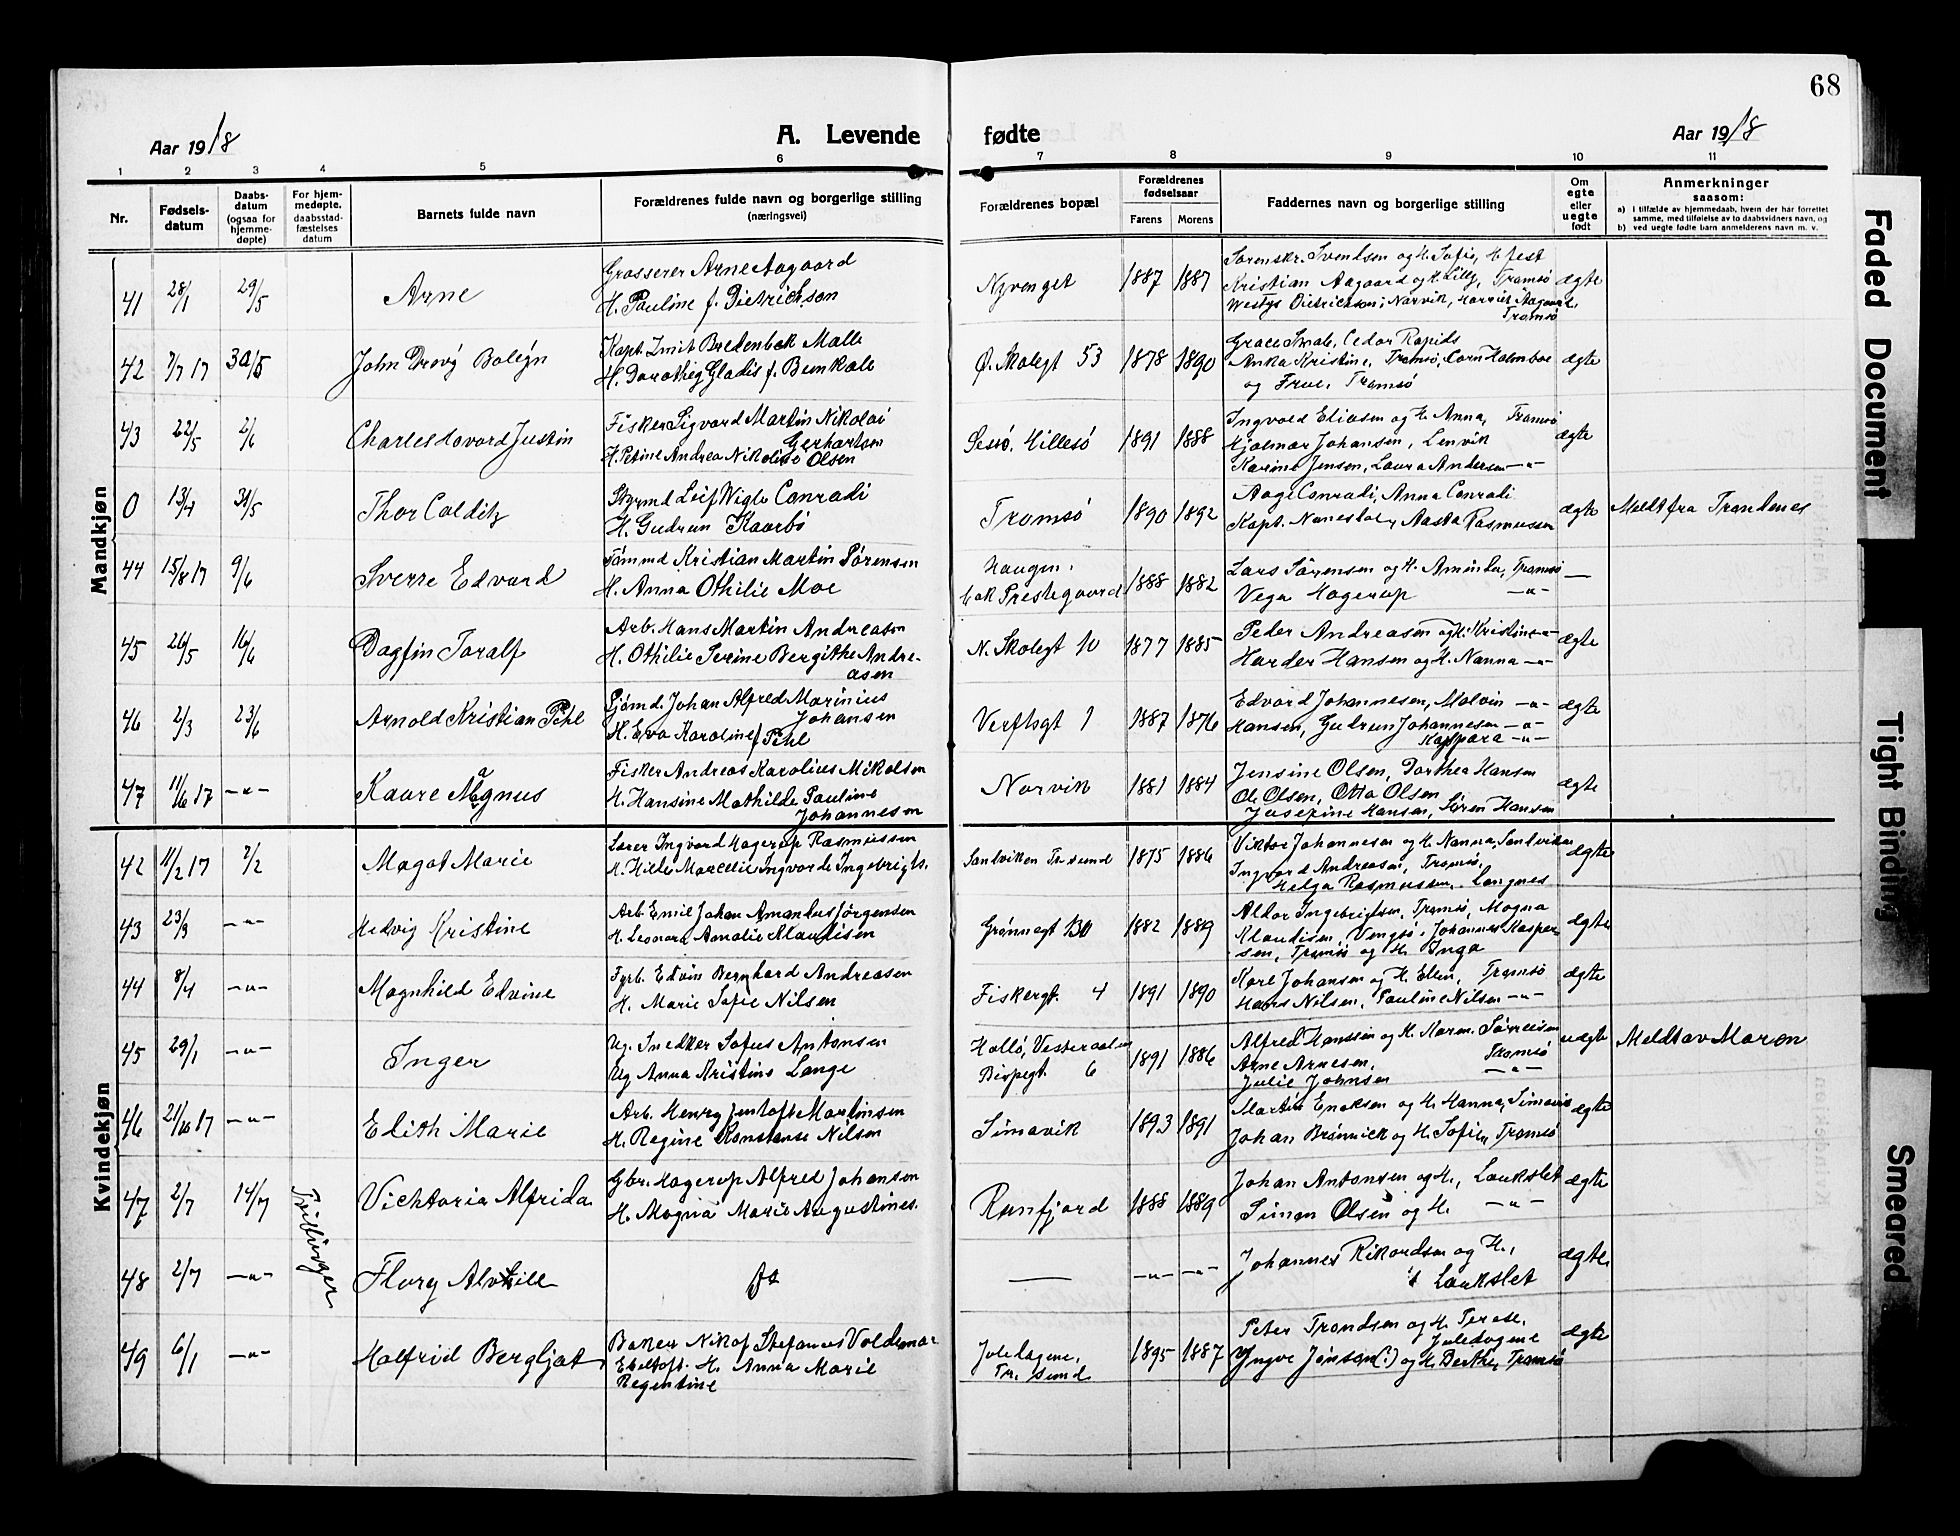 68
Aar 1918
A. Levende fødte
Aar 1918
1 2 3 4 5 6 7 8 9 10 11
Nr.
Fødsels-
datum
Daabs-
datum
(ogsaa for
hjemme-
døpte)
For hjem-
medøpte,
daabsstad-
fæstelses
datum
Barnets fulde navn
Forældrenes fulde navn og borgerlige stilling
(næringsvei)
Forældrenes bopæl
Forældrenes
fødselsaar
Farens Morens
Faddernes navn og borgerlige stilling
Om
egte
eller
uegte
født
Anmerkninger
saasom:
a) i tilfælde av hjemmedaab, hvem der har forrettet
samme, med tilføielse av to daabsvidners navn, og
b) ved uegte fødte barn anmelderens navn m. v.
Mandkjøn
41 28/1 29/5 Arne
Grosserer Arne Aagaard
H. Pauline f. Dietrichson
Nyvenget 1887 1887
Sorenskr. Svendsen og H. Sofie, H.fest
Kristian Aagaard og H. Lilly, Tromsø
Westye Dietrichson, Narvik, Harriet Aagaard,
Tromsø
ægte
42 7/7 17 30/5 John Drevy Bolegn
Kapt. Emit Bredenbek Malle
H. Dorothey Gladis f.
Ø. Skolegt 53 1878 1890
Grace Smale, Cedar Rapids
Anka Kristine, Tromsø, Corn Holmboe
og Frue, Tromsø
ægte
43 22/5 2/6 Charles Havard Justin
Fisker Sigvard Martin Nikolai
Gerhartsen
H. Petine Andrea Nikolise Olsen
Sessø, Hillesø 1891 1888
Ingvald Eliasen og H. Anna, Tromsø
Hjalmar Johansen, Lenvik
Karine Jensen, Laura Andersen -"-
ægte
0 13/4 31/5 Thor Colditz
Styrmd Leif Wigle Conradi
H. Gudrun Kaarbø
Tromsø 1890 1892
Aage Conradi, Anna Conradi
Kapt. Aasta Rasmussen
ægte Meldt fra Trondenes
44 15/8 17 9/6 Sverre Edvard
Tømmd Kristian Martin Sørensen
H. Anna Othilie Moe
Haugen,
bak Prestegaard 1888 1882
Lars Sørensen og H. Aminda, Tromsø
Vega Hagerup -"-
—
45 26/5 16/6 Dagfin Toralf
Arb. Hans Martin Andreasen
H. Othilie Serine Bergithe Andre-
asen
N. Skolegt 10 1877 1885
Peder Andreasen og H. Kristine -"-
Harder Hansen og H. Nanna -"-
ægte
46 2/3 23/6 Arnold Kristian Pihl
Sjømd. Johan Alfred Marinius
Johansen
H. Eva Karoline f. Pihl
Verftsgt 1 1887 1876
Edvard Johannesen, Malvin -"-
Hansen, Gudrun Johannesen -"-
Kaspara -"-
ægte
47 11/6 17 -"- Kaare Magnus
Fisker Andreas Karolius Mikalsen
H. Hansine Mathilde Pauline
Johannesen
Narvik 1881 1884
Jensine Olsen, Dorthea Hansen
Ole Olsen, Otto Olsen
Josefine Hansen, Søren Hansen
ægte
Kvindekjøn
42 11/2 17 2/2 Magot Marie
Lærer Ingvard Hagerup Rasmussen
H. Hilda Marcelie Ingvarda Ingebrigts.
Sandviken Tr.sund 1875 1886
Viktor Johannesen og H. Nanna, Sandviken
Ingvard Andreasen, Tromsø,
Helga Rasmussen, Langnes
ægte
43 23/3 -"- Hedvig Kristine
Arb. Emil Johan Amandus Jørgensen
H. Leonora Amalie Klaudisen
Grønnegt 130 1882 1889
Aldor Ingebrigtsen, Tromsø, Magna
Klaudisen, Vengsø, Johannes Kasper-
sen, Tromsø og H. Inga
ægte
44 8/4 -"- Magnhild Edvine
Fyrb. Edvin Bernhard Andreasen
H. Marie Sofie Nilsen
Fiskergt. 4 1891 1890
Karl Johansen og H. Ellen, Tromsø
Hans Nilsen, Pauline Nilsen -"-
ægte
45 29/1 -"- Inger
Ug. Snedker Sofus Antonsen
Ug Anna Kristine Lange
Hallø, Vesteraalen
Bispegt. 6 1891 1886
Alfred Hanssen og H. Maren Sørreisen
Arne Arnesen, Tromsø
Julie Johnsen -"-
uægte Meldt av Moren
46 21/10 17 -"- Edith Marie
Arb. Henry Jentoft Martinsen
H. Regine Konstanse Nilsen
Simavik 1893 1891
Martin Enoksen og H. Hanna, Simavik
Johan Brønnick og H. Sofie, Tromsø
ægte
47 2/7 14/7 Tvillinger Vichtoria Alfrida
Gbr. Hagerup Alfred Johansen
H. Magna Marie Augustines.
Ramfjord 1888 1889
Johan Antonsen og H., Laukslet
Simon Olsen og H. -"-
ægte
48 2/7 -"- Flory Alvhild
ds
— -"- -"-
Johannes Rikardsen og H.,
Laukslet
ægte
49 6/1 -"- Halfrid Bergljot
Baker Nikof Stefanus Valdemar
Ebeltoft. H. Anna Marie
Regentine
Joledagene,
Tr. sund 1895 1887
Peter Trondsen og H. Terese,
Joledagene
Yngve Jensen(?) og H. Berthe, Tromsø
ægte
Faded Document
Tight Binding
Smeared